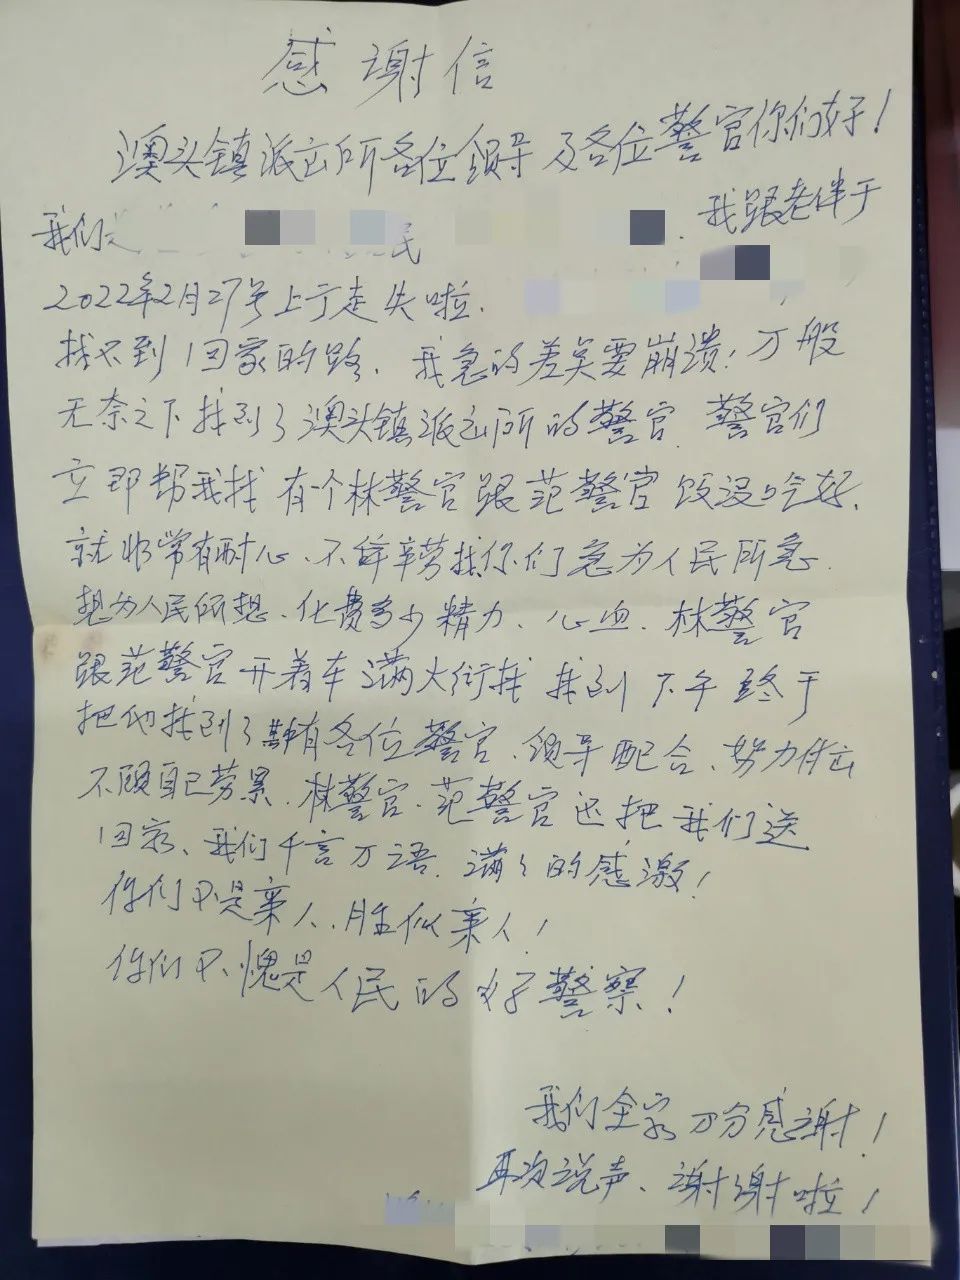 感谢信
澳头镇派出所各位领导及各位警官你们好!
我们是 民 . 我跟老伴于
2022年2月27号上午走失啦.
找不到回家的路. 我急的差矣要崩溃! 万般
无奈之下找到了澳头镇派出所的警官. 警官们
立即帮我找 有个林警官跟范警官饭没吃好.
就非常有耐心、不辞辛劳找你们急为人民所急.
想为人民所想. 化费多少精力、心血. 林警官
跟范警官开着车满大街找 找到下午终于
把他找到了 有各位警官、领导配合、努力付出
不顾自己劳累. 林警官. 范警官还把我们送
回家、我们千言万语. 满々的感激!
你们不是亲人. 胜似亲人!
你们不愧是人民的好警察!
我们全家万分感谢!
再次说声、谢谢啦!